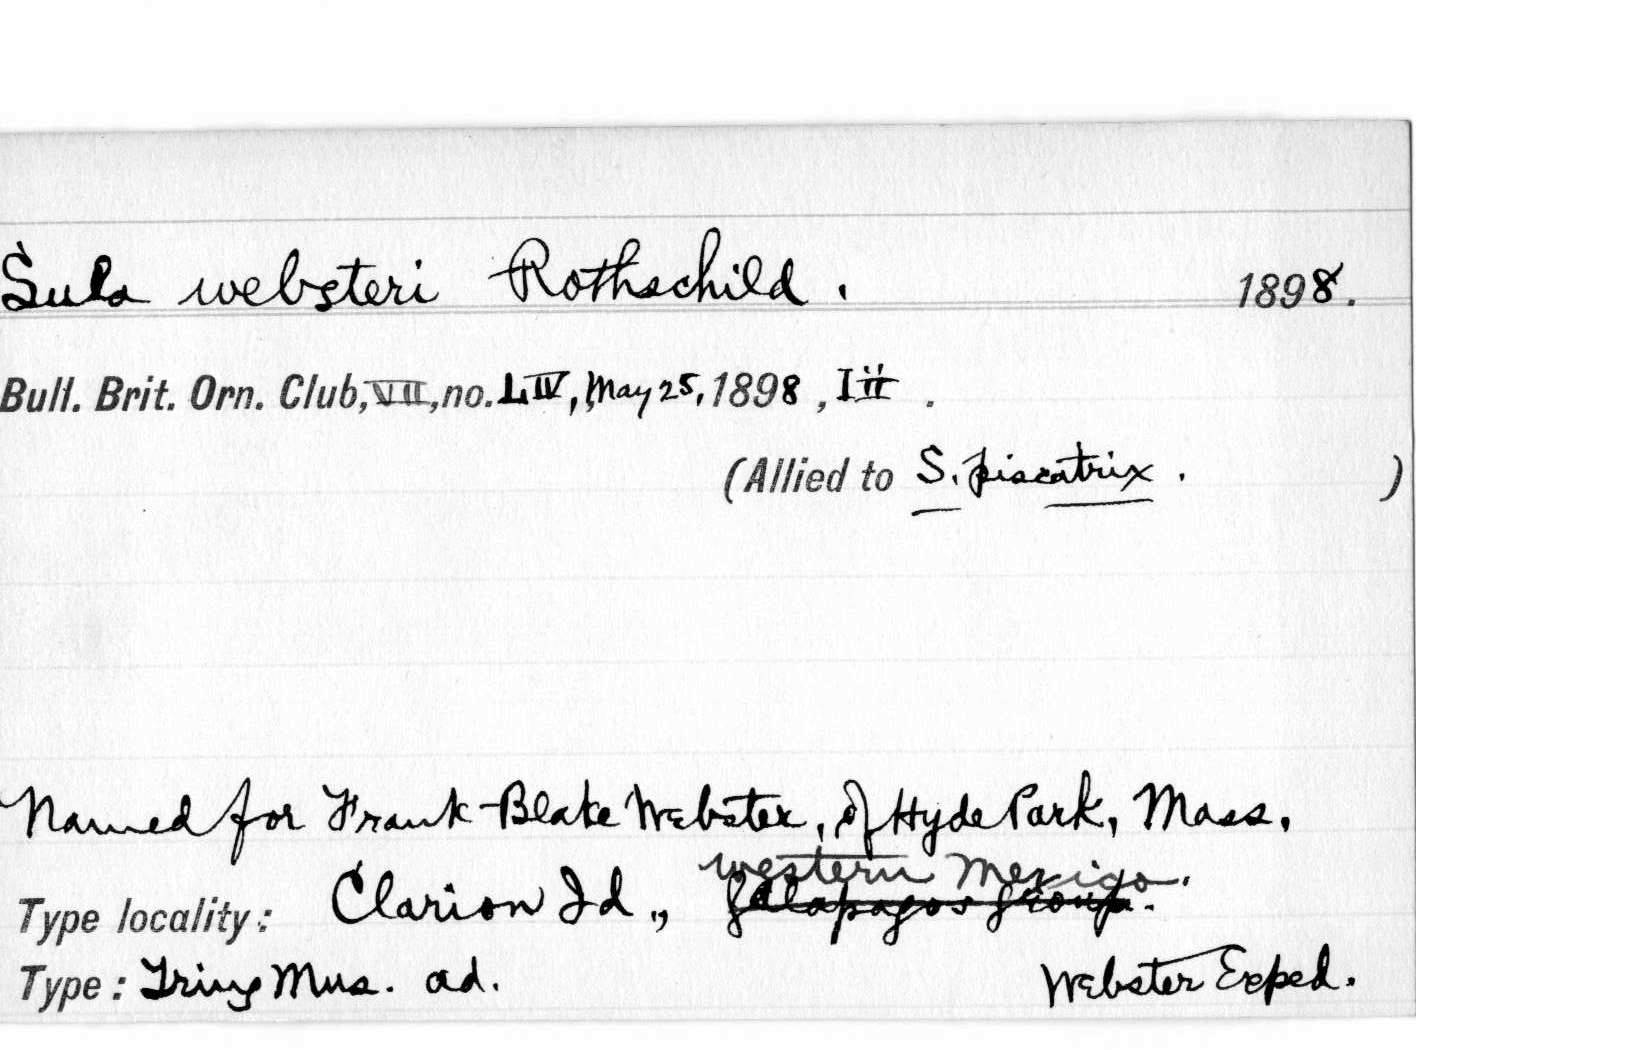 Sula websteri Rothschild. 1898.
Bull. Brit. Orn. Club, VII, no. LIV, May 25, 1898, lii.
(Allied to S. piscatrix. )
Named for Frank Blake Webster, of Hyde Park, Mass.
western Mexico.
Type locality: Clarion Id., Galapagos Group.
Type: Tring Mus. ad. Webster Exped.